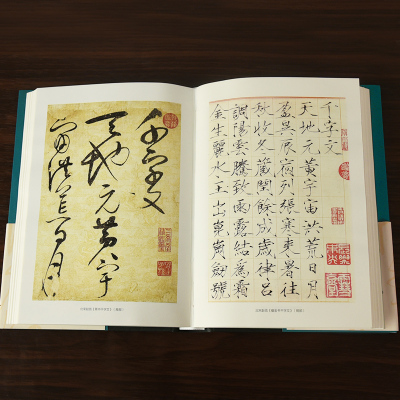 千字文
天地元黃宇
宙洪荒日月
千字文
天地元黃宇宙洪荒日月
盈昃辰宿列張寒來暑往
秋收冬藏閏餘成歲律呂
調陽雲騰致雨露結為霜
金生麗水玉出崑岡劍號